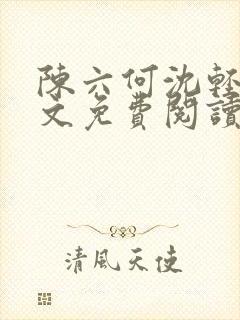 陳六何沈輕
文免費閱讀
清風天使